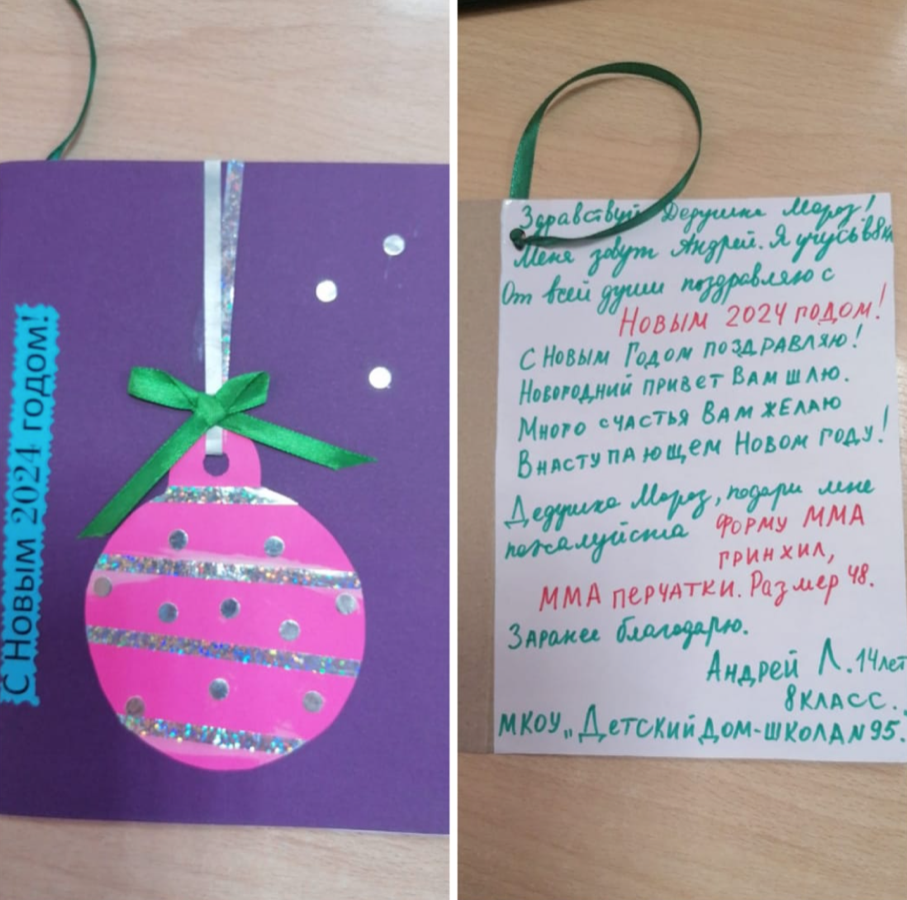 С Новым 2024 годом!
Здравствуй Дедушка Мороз!
Меня зовут Андрей. Я учусь в 8 кл
От всей души поздравляю с
Новым 2024 годом!
С Новым Годом поздравляю!
Новогодний привет Вам шлю.
Много счастья Вам желаю
В наступающем Новом году!
Дедушка Мороз, подари мне
пожалуйста форму ММА
гринхил,
ММА перчатки. Размер 48.
Заранее благодарю.
Андрей Л. 14 лет
8 класс.
МКОУ „Детский дом-школа N 95".